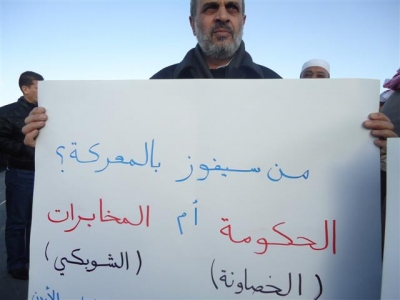 من سيفوز بالمعركة؟
الحكومة أم المخابرات
(الخصاونة) (الشوبكي)